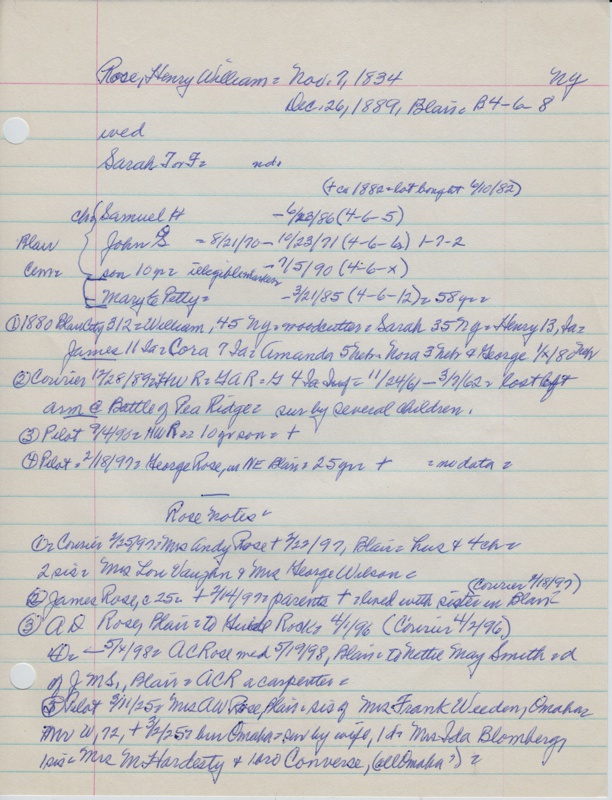 Rose, Henry William = Nov. 7, 1834 NY
Dec. 26, 1889, Blair = B4-6-8
wed
Sarah T or F = nd.
(+ ca 1882 = lot bought 4/10/82)
chn Samuel H - 6/23/86 (4-6-5)
Blair John G = 8/21/70 - 10/23/71 (4-6-6) 1-7-2
Cem = son 10 yr = illegible marker - 7/5/90 (4-6-x)
Mary C Petty = - 3/21/85 (4-6-12) = 58 yr =
① 1880 Blair City 312 = William, 45 NY = woodcutter = Sarah 35 NY = Henry 13, Ia =
James 11 Ia = Cora 7 Ia = Amanda 5 Neb = Nora 3 Neb & George 1/12 Neb
② Courier 12/28/89 = HWR = GAR = G 4 Ia Inf = 11/24/61 - 3/7/62 = lost left
arm @ Battle of Pea Ridge = sur by several children.
③ Pilot 7/4/90 = HWR = 10 yr son = +
④ Pilot = 2/18/97 = George Rose, in NE Blair = 25 yr + = no data =
Rose Notes =
① = Courier 2/25/97 = Mrs Andy Rose + 2/22/97, Blair = hus & 4 ch =
2 sis = Mrs Lou Vaughn & Mrs George Wilson =
② James Rose, c 25 = + 2/14/97 = parents + = lived with sister in Blair (Courier 2/18/97)
③ A D Rose, Blair = to Guide Rock = 4/1/96 (Courier 4/2/96)
④ = - 5/ /98 = AC Rose wed 5/19/98, Blair = to Nettie May Smith = d
of J M S, Blair = ACR a carpenter =
⑤ Pilot 3/11/25 = Mrs AW Rose Blair = sis of Mrs Frank Weeden, Omaha =
Mr W, 72, + 3/ /25 = bur Omaha = sur by wife, 1 d = Mrs Ida Blomberg,
1 sis = Mrs M Hardesty & 1 bro Converse, (all Omaha?) =